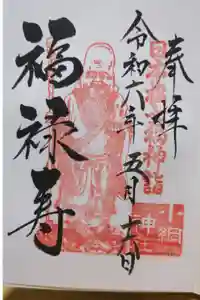 奉拝
日本橋七福神詣
小網神社
令和六年 五月十六日
福禄寿